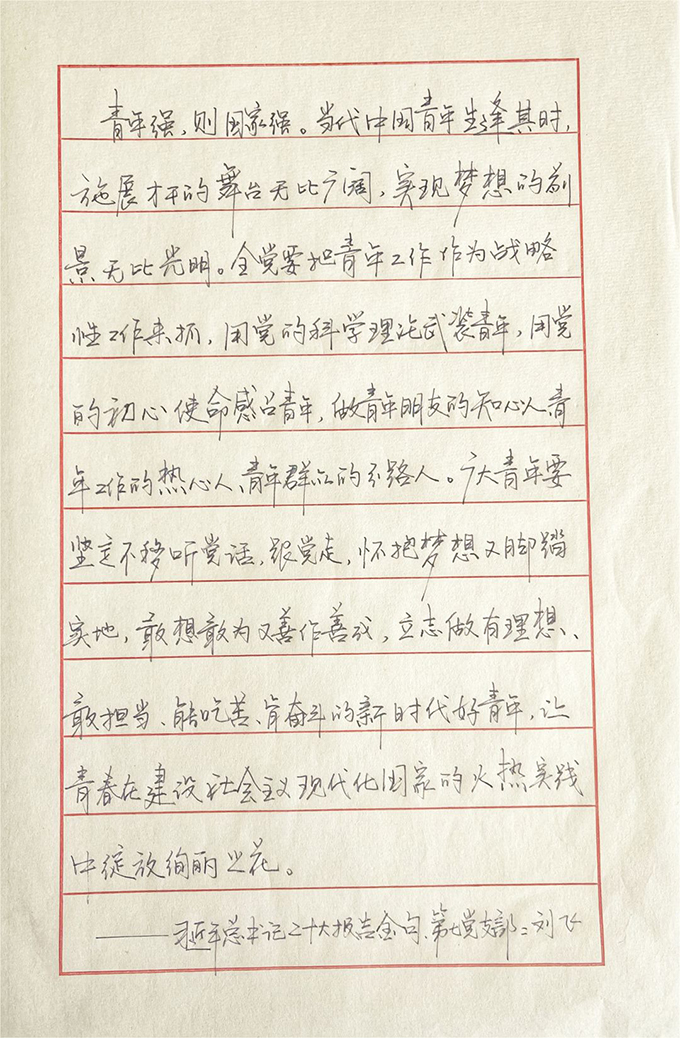 青年强，则国家强。当代中国青年生逢其时，
施展才干的舞台无比广阔，实现梦想的前
景无比光明。全党要把青年工作作为战略
性工作来抓，用党的科学理论武装青年，用党
的初心使命感召青年，做青年朋友的知心人、青
年工作的热心人、青年群众的引路人。广大青年要
坚定不移听党话，跟党走，怀抱梦想又脚踏
实地，敢想敢为又善作善成，立志做有理想、
敢担当、能吃苦、肯奋斗的新时代好青年，让
青春在建设社会主义现代化国家的火热实践
中绽放绚丽之花。
——习近平总书记二十大报告金句、第七党支部：刘飞